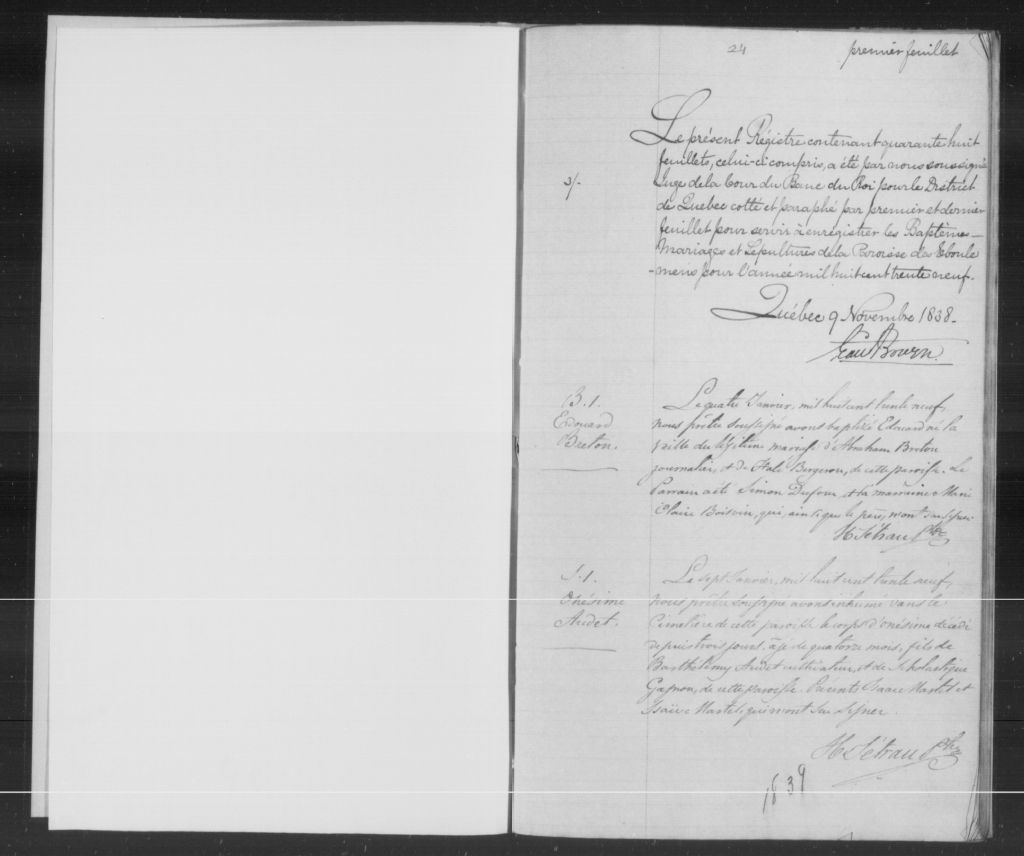 24
premier feuillet
Le présent Régistre contenant quarante huit
feuillets, celui-ci compris, a été par nous soussigné
Juge de la Cour du Banc du Roi pour le District
de Quebec cotté et paraphé par premier et dernier
feuillet pour servir à enrégistrer les Baptêmes
Mariages et Sépultures de la Paroisse des Eboule
-mens pour l'année mil huit cent trente neuf.
Québec 9 Novembre 1838.
B. 1.
Edouard
Breton.
Le quatre Janvier, mil huit cent trente neuf,
nous prêtre soussigné avons baptizé Edouard né la
veille du légitime mariage d'Abraham Breton
journalier, et de Bergeron, de cette paroisse. Le
Parrain a été Simon Dufour, et la marraine Marie
Claire Boivin, qui, ainsi que le père, n'ont su signer
Ptre
S. 1.
Onésime
Audet.
Le sept Janvier, mil huit cent trente neuf,
nous prêtre soussigné avons inhumé dans le
Cimetière de cette paroisse le corps d'onésime décédé
depuis trois jours, âgé de quatorze mois, fils de
Barthélémy Audet cultivateur, et de Scholastique
Gagnon, de cette paroisse. Présents Isaac Martel et
Martel qui n'ont su signer.
Ptre
1839